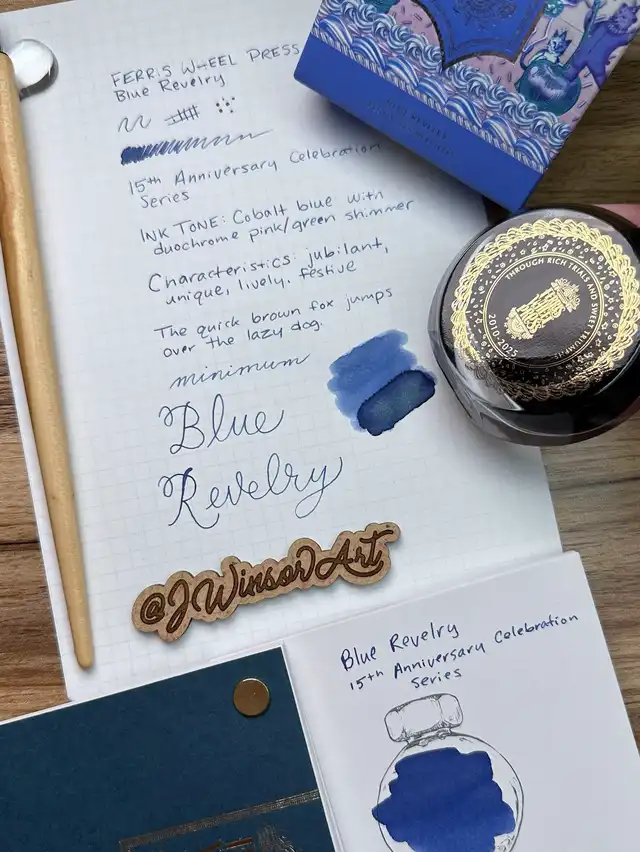 FERRiS WHEEL PRESS
Blue Revelry
15th Anniversary Celebration
Series
INK TONE: Cobalt blue with
duochrome pink/green shimmer
Characteristics: jubilant,
unique, lively, festive
The quick brown fox jumps
over the lazy dog.
minimum
Blue
Revelry
@JWinsorArt
THROUGH RICH TRIALS AND SWEET TRIUMPHS
2010-2025
Blue Revelry
15th Anniversary Celebration
Series